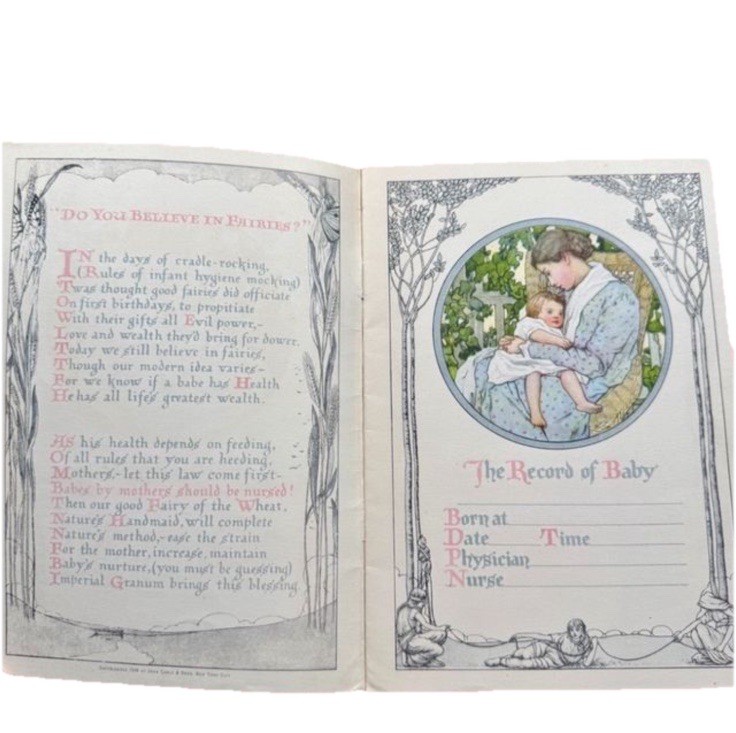 "DO YOU BELIEVE IN FAIRIES?"
IN the days of cradle-rocking,
(Rules of infant hygiene mocking)
Twas thought good fairies did officiate
On first birthdays, to propitiate
With their gifts all Evil power,-
Love and wealth they'd bring for dower.
Today we still believe in fairies,
Though our modern idea varies-
For we know if a babe has Health
He has all life's greatest wealth.
As his health depends on feeding,
Of all rules that you are heeding,
Mothers,-let this law come first-
Babes by mothers should be nursed!
Then our good Fairy of the Wheat,
Nature's Handmaid, will complete
Nature's method,-ease the strain
For the mother, increase, maintain
Baby's nurture, (you must be guessing)
Imperial Granum brings this blessing.
The Record of Baby
Born at
Date Time
Physician
Nurse